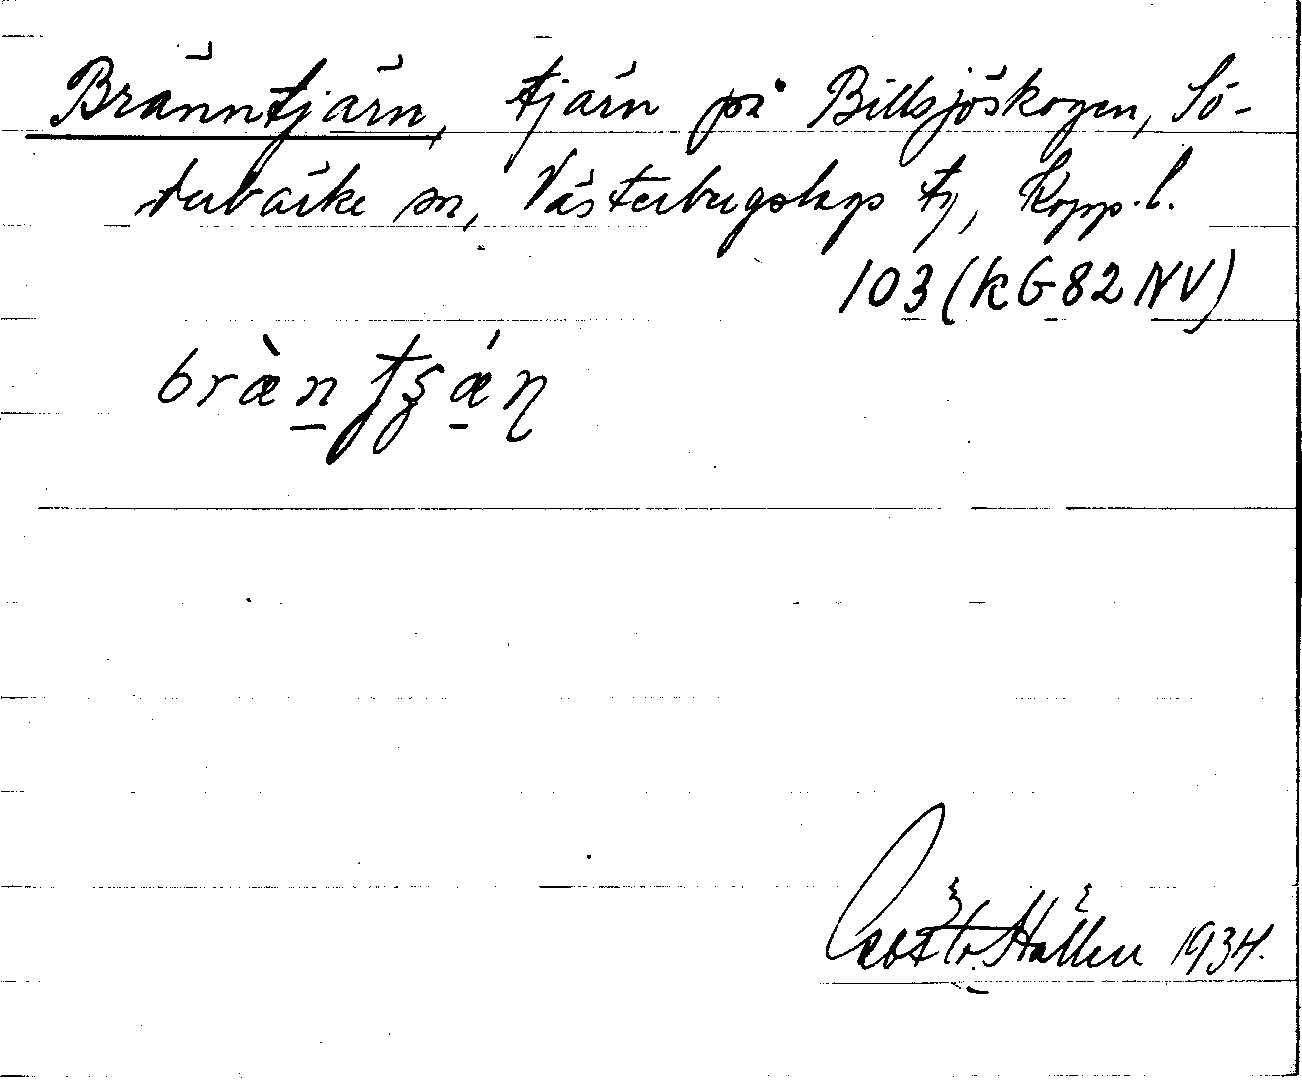 Bränntjärn, tjärn på Billsjöskogen, Sö-
derbärke sn, Västerbergslags tg, Kopp. l.
103 (KG 82 NV)
bræ̀n tʂǽɳ
1934.